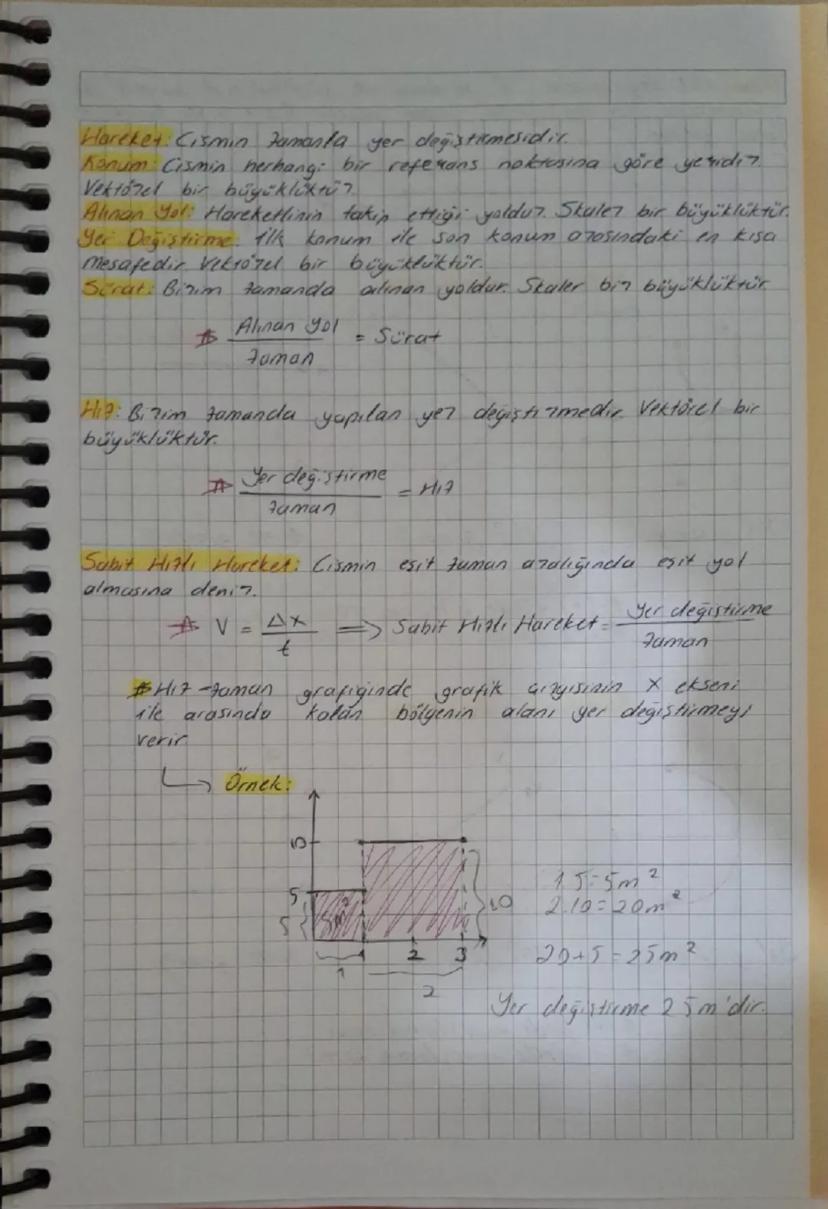 Hareket: Cismin zamanla yer değiştirmesidir.
Konum: Cismin herhangi bir referans noktasına göre yeridir.
Vektörel bir büyüklüktür.
Alınan Yol: Hareketlinin takip ettiği yoldur. Skaler bir büyüklüktür.
Yer Değiştirme: İlk konum ile son konum arasındaki en kısa
mesafedir. Vektörel bir büyüklüktür.
Sürat: Birim zamanda alınan yoldur. Skaler bir büyüklüktür
Alınan Yol
= Sürat
Zaman
Hız: Birim zamanda yapılan yer değiştirmedir. Vektörel bir
büyüklüktür.
Yer değiştirme
= Hız
Zaman
Sabit Hızlı Hareket: Cismin eşit zaman aralığında eşit yol
almasına denir.
V = Δx / t ⇒ Sabit Hızlı Hareket = Yer değiştirme / Zaman
Hız-zaman grafiğinde grafik çizgisinin X ekseni
ile arasında kalan bölgenin alanı yer değiştirmeyi
verir
Örnek:
10
5
5
5m²
10
1 2 3
1
2
1.5=5m²
2.10=20m²
20+5=25m²
Yer değiştirme 25m'dir.